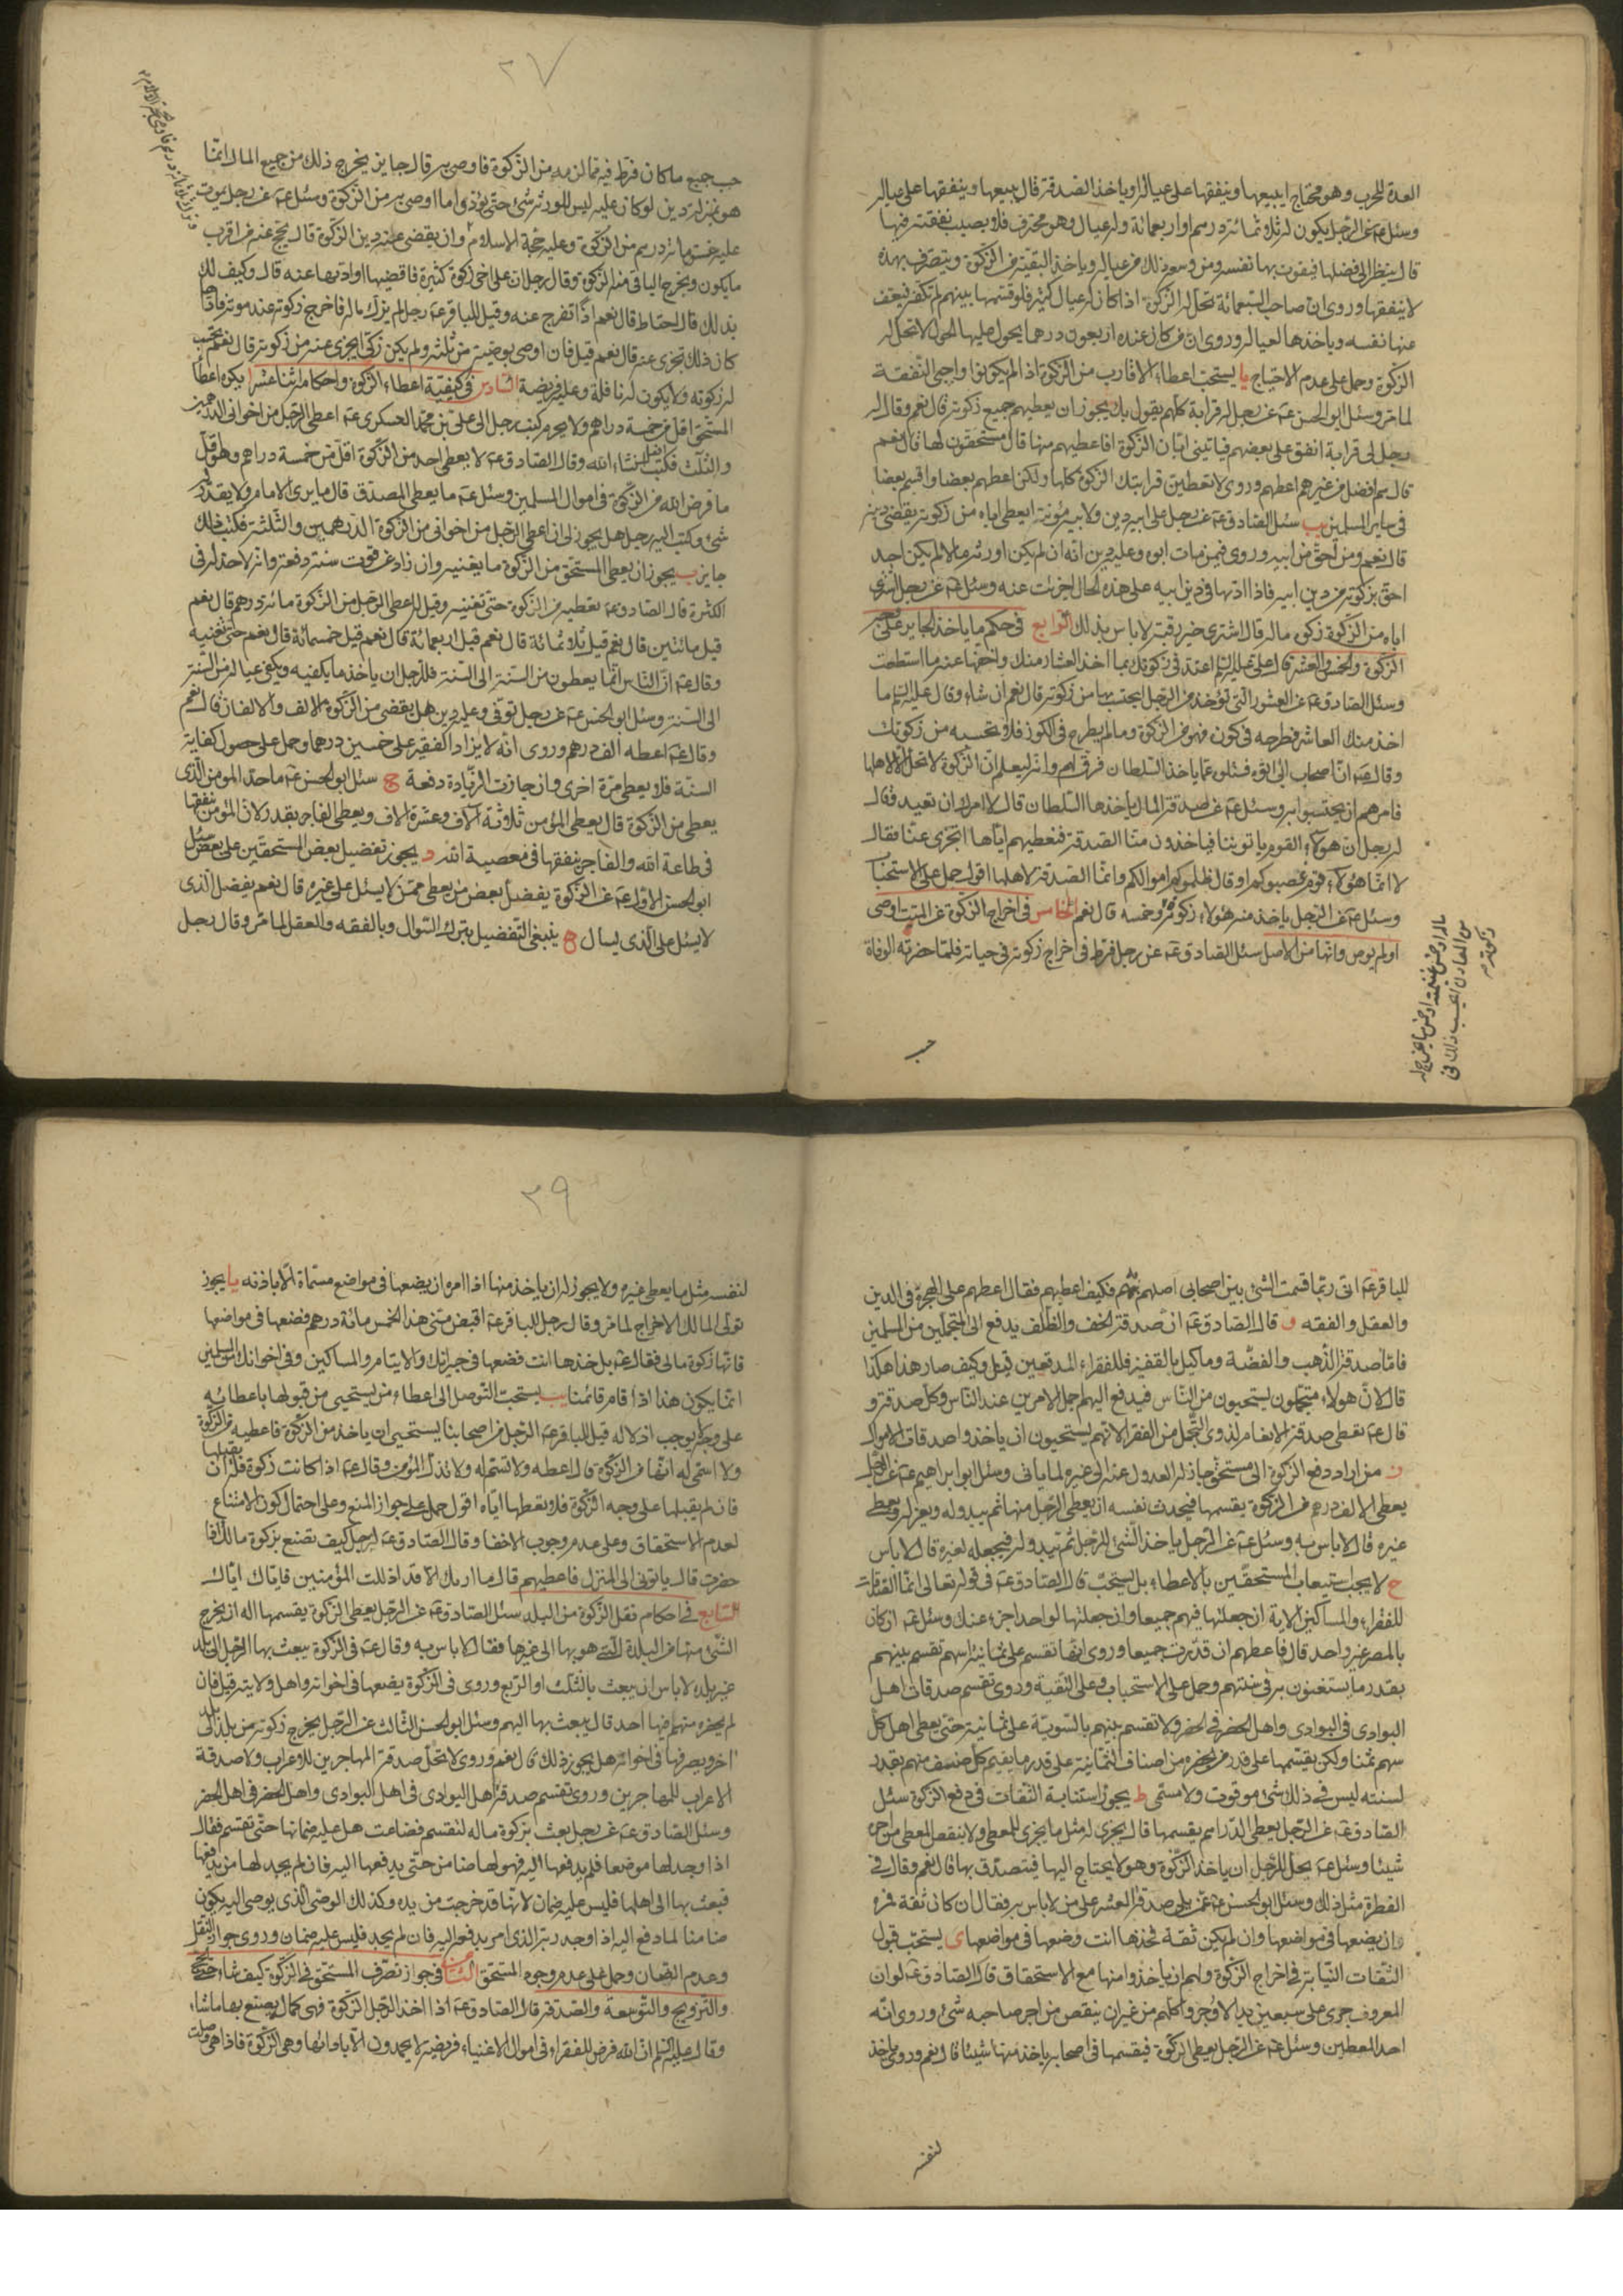 العدة للحرب وهو محتاج ايبيعها وينفقها على عياله او ياخذ الصدقة قال يبيعها وينفقها على عياله
وسئل عة عن الرجل يكون له ثلاثمائة درهم او اربعمائة وله عيال وهو محترف فلا يصيب نفقته فيها
قال ينظر الى فضلها فيقوت بها نفسه ومن وسعه ذلك من عياله وياخذ البقية من الزكوة ويتصرف بهذه
لا ينفقها وروى ان صاحب السبعمائة تحل له الزكوة اذا كان له عيال كثير فلو قسمها بينهم لم تكفه فيعف
عنها نفسه وياخذها لعياله وروى ان من كان عنده اربعون درهما يحول عليها الحول لا تحل له
الزكوة وحمل على عدم الاحتياج يا يستحب اعطاء الاقارب من الزكوة اذا لم يكونوا واجبى النفقة
لما مر وسئل ابو الحسن عة عن رجل له قرابة كلهم يقول بك يجوز ان يعطيهم جميع زكوته قال نعم وقال له
رجل لى قرابة انفق على بعضهم فياتينى ابان الزكوة افاعطيهم منها قال مستحقون لها قال نعم
قال هم افضل من غيرهم اعطهم وروى لا تعطين قرابتك الزكوة كلها ولكن اعطهم بعضا واقسم بعضا
فى ساير المسلمين يب سئل الصادق عة عن رجل على ابيه دين ولابيه مؤنة ايعطى اباه من زكوته يقضى دينه
قال نعم ومن احق من ابيه وروى فيمن مات ابوه وعليه دين انه ان لم يكن اورثه مالا لم يكن احد
احق بزكوته من دين ابيه فاذا اداها فى دين ابيه على هذه الحال اجزئت عنه وسئل عة عن رجل اشترى
اباه من الزكوة زكوة ماله قال اشترى خير رقبة لا باس بذلك الرابع فى حكم ما ياخذ الجاير على وجه
الزكوة والخمس والعشر قال على عليه السلم اعتد فى زكوتك بما اخذ العشار منك واخفها عنه ما استطعت
وسئل الصادق عة عن العشور التى تؤخذ من الرجل يحتسب بها من زكوته قال نعم ان شاء وقال عليه السلم ما
اخذ منك العاشر فطرحه فى كوزه فهو من الزكوة وما لم يطرح فى الكوز فلا تحتسبه من زكوتك
وقال عة ان اصحاب ابى اتوه فسئلوه عما ياخذ السلطان فرق لهم وانه ليعلم ان الزكوة لا تحل الا لاهلها
فامرهم ان يحتسبوا به وسئل عة عن صدقة المال ياخذها السلطان قال لا امرك ان تعيد وقال
له رجل ان هؤلاء القوم ياتوننا فياخذون منا الصدقة فنعطيهم اياها اتجزى عنا فقال
لا انما هؤلاء قوم غصبوكم او قال ظلموكم اموالكم وانما الصدقة لاهلها اقول حمل على الاستحباب
وسئل عة عن الرجل ياخذ منه هؤلاء زكوة وخمسه قال نعم الخامس فى اخراج الزكوة عن الميت اوصى
او لم يوص وانها من الاصل سئل الصادق عة عن رجل فرط فى اخراج زكوته فى حياته فلما حضرته الوفاة
حسب
٢٧
حسب جميع ما كان فرط فيه مما لزمه من الزكوة فاوصى به قال جايز يخرج ذلك من جميع المال انما
هو بمنزلة دين لو كان عليه ليس للورثة شئ حتى يؤدوا ما اوصى به من الزكوة وسئل عة عن رجل يموت
عليه خمسمائة درهم من الزكوة وعليه حجة الاسلام وان يقضى عنه دين الزكوة قال يحج عنه من اقرب
ما يكون ويخرج الباقى من الزكوة وقال رجل ان على اخى زكوة كثيرة فاقضيها او اؤديها عنه قال وكيف لك
بذلك قال احتاط قال نعم اذا تفرج عنه وقيل للباقر عة رجل لم يزك ماله فاخرج زكوته عند موته فاداها
كان ذلك تجزى عنه قال نعم قيل فان اوصى بوصية من ثلثه ولم يكن زكى ايجزى عنه من زكوته قال نعم تحتسب
له زكوته ولا يكون له نافلة وعليه فريضة السادس فى كيفية اعطاء الزكوة واحكامه اثنا عشر ا يكره اعطاء
المستحق اقل من خمسة دراهم ولا يحرم كتب رجل الى على بن محمد العسكرى عة اعطى الرجل من اخوانى الدرهمين
والثلث فكتب افعل انشاء الله وقال الصادق عة لا يعطى احد من الزكوة اقل من خمسة دراهم وهو اقل
ما فرض الله من الزكوة فى اموال المسلمين وسئل عة ما يعطى المصدق قال ما يرى الامام ولا يقدر له
شئ وكتب اليه رجل هل يجوز لى ان اعطى الرجل من اخوانى من الزكوة الدرهمين والثلثة فكتب ذلك
جايز ب يجوز ان يعطى المستحق من الزكوة ما يغنيه وان زاد عن قوت سنته دفعة وانه لا حد له فى
الكثرة قال الصادق عة تعطيه من الزكوة حتى تغنيه وقيل له اعطى الرجل من الزكوة مائة درهم قال نعم
قيل مائتين قال نعم قيل ثلاثمائة قال نعم قيل اربعمائة قال نعم قيل خمسمائة قال نعم حتى تغنيه
وقال عة ان الناس انما يعطون من السنة الى السنة فللرجل ان ياخذ ما يكفيه ويكفى عياله من السنة
الى السنة وسئل ابو الحسن عة عن رجل توفى وعليه دين هل يقضى من الزكوة الالف والالفان قال نعم
وقال عة اعطه الف درهم وروى انه لا يزاد الفقير على خمسين درهما وحمل على حصول كفاية
السنة فلا يعطى مرة اخرى وان جازت الزيادة دفعة ج سئل ابو الحسن عة ما حد المؤمن الذى
يعطى من الزكوة قال يعطى المؤمن ثلاثة آلاف وعشرة الاف ويعطى الفاجر بقدر لان المؤمن ينفقها
فى طاعة الله والفاجر ينفقها فى معصية الله د يجوز تفضيل بعض المستحقين على بعض سئل
ابو الحسن الاول عة عن الزكوة يفضل بعض من يعطى ممن لا يسئل على غيره قال نعم يفضل الذى
لا يسئل على الذى يسال ه ينبغى التفضيل بترك السؤال وبالفقه والعقل لما مر وقال رجل
للباقر عة انى ربما قسمت الشئ بين اصحابى اصلهم به فكيف اعطيهم فقال اعطهم على الهجرة فى الدين
والعقل والفقه و قال الصادق عة ان صدقة الخف والظلف يدفع الى المتجملين من المسلمين
فاما صدقة الذهب والفضة وما كيل بالقفيز فللفقراء المدقعين قيل وكيف صار هذا هكذا
قال لان هؤلاء متجملون يستحيون من الناس فيدفع اليهم اجمل الامرين عند الناس وكل صدقة و
قال عة تعطى صدقة الانعام لذوى التجمل من الفقراء لانهم يستحيون ان ياخذوا صدقات الاموال
ز من اراد دفع الزكوة الى مستحق جاز له العدول عنه الى غيره لما ياتى وسئل ابو ابراهيم عة عن الرجل
يعطى الالف درهم من الزكوة يقسمها فيحدث نفسه ان يعطى الرجل منها ثم يبدو له ويعزله ويعطى
غيره قال لا باس به وسئل عة عن الرجل ياخذ الشئ للرجل ثم يبدو له فيجعله لغيره قال لا باس
ح لا يجب استيعاب المستحقين بالاعطاء بل يستحب قال الصادق عة فى قوله تعالى انما الصدقات
للفقراء والمساكين الاية ان جعلتها فيهم جميعا وان جعلتها لواحد اجزء عنك وسئل عة ان كان
بالمصر غير واحد قال فاعطهم ان قدرت جميعا وروى انها تقسم على ثمانية اسهم تقسم بينهم
بقدر ما يستغنون به فى سنتهم وحمل على الاستحباب وعلى التقية وروى تقسم صدقات اهل
البوادى فى البوادى واهل الحضر فى الحضر ولا تقسم بينهم بالسوية على ثمانية حتى يعطى اهل كل
سهم ثمنا ولكن يقسمها على قدر من يحضره من اصناف الثمانية على قدر ما يقيم كل صنف منهم بقدر
لسنته ليس فى ذلك شئ موقوت ولا مسمى ط يجوز استنابة الثقات فى دفع الزكوة سئل
الصادق عة عن الرجل يعطى الدراهم يقسمها قال يجرى له مثل ما يجرى للمعطى ولا ينقص المعطى من اجره
شيئا وسئل عة يحل للرجل ان ياخذ الزكوة وهو لا يحتاج اليها فيتصدق بها قال نعم وقال فى
الفطرة مثل ذلك وسئل ابو الحسن عة عمن يلى صدقة العشر على من لا باس به فقال ان كان ثقة فمره
وان يضعها فى مواضعها وان لم يكن ثقة فخذها انت وضعها فى مواضعها ى يستحب قبول
الثقات النيابة فى اخراج الزكوة ولهم ان ياخذوا منها مع الاستحقاق قال الصادق عة لو ان
المعروف جرى على سبعين يدا لاوجروا كلهم من غير ان ينقص من اجر صاحبه شئ وروى انه
احد المعطين وسئل عة عن الرجل يعطى الزكوة فيقسمها فى اصحابه ياخذ منها شيئا قال نعم وروى ياخذ
لنفسه
٢٩
لنفسه مثل ما يعطى غيره ولا يجوز له ان ياخذ منها اذا امره ان يضعها فى مواضع مسماة الا باذنه يا يجوز
تولى المالك الاخراج لما مر وقال رجل للباقر عة اقبض منى هذا الخمس مائة درهم فضعها فى مواضعها
فانها زكوة مالى فقال عة بل خذها انت فضعها فى جيرانك والايتام والمساكين وفى اخوانك المسلمين
انما يكون هذا اذا قام قائمنا يب يستحب التوصل الى اعطاء من يستحيى من قبولها باعطائه
على وجه لا يوجب اذلاله قيل للباقر عة الرجل من اصحابنا يستحيى ان ياخذ من الزكوة فاعطيه من الزكوة
ولا اسمى له انها من الزكوة قال اعطه ولا تسم له ولا تذل المؤمن وقال عة اذا كانت زكوة فله ان يقبلها
فان لم يقبلها على وجه الزكوة فلا تعطها اياه اقول حمل على جواز المنع وعلى احتمال كون الامتناع
لعدم الاستحقاق وعلى عدم وجوب الاخفا وقال الصادق عة لرجل كيف تصنع بزكوة مالك اذا
حضرت قال ياتونى الى المنزل فاعطيهم قال ما اراك الا قد اذللت المؤمنين فاياك اياك
السابع فى احكام نقل الزكوة من البلد سئل الصادق عة عن الرجل يعطى الزكوة يقسمها اله ان يخرج
الشئ منها من البلدة التى هو بها الى غيرها فقال لا باس به وقال عة فى الزكوة يبعث بها الرجل الى بلد
غير بلده لا باس ان يبعث بالثلث او الربع وروى فى الزكوة يضعها فى اخوانه واهل ولايته قيل فان
لم يحضره منهم فيها احد قال يبعث بها اليهم وسئل ابو الحسن الثالث عن الرجل يخرج زكوته من بلد الى بلد
اخر ويصرفها فى اخوانه هل يجوز ذلك قال نعم وروى لا تحل صدقة المهاجرين للاعراب ولا صدقة
الاعراب للمهاجرين وروى تقسم صدقة اهل البوادى فى اهل البوادى واهل الحضر فى اهل الحضر
وسئل الصادق عة عن رجل بعث بزكوة ماله لتقسم فضاعت هل عليه ضمانها حتى تقسم فقال
اذا وجد لها موضعا فلم يدفعها اليه فهو لها ضامن حتى يدفعها اليه فان لم يجد لها من يدفعها
فبعث بها الى اهلها فليس عليه ضمان لانها قد خرجت من يده وكذلك الوصى الذى يوصى اليه يكون
ضامنا لما دفع اليه اذا وجد ربه الذى امر بدفعه اليه فان لم يجد فليس عليه ضمان وروى جواز النقل
وعدم الضمان وحمل على عدم وجود المستحق الثامن فى جواز تصرف المستحق فى الزكوة كيف شاء حتى الحج
والتزويج والتوسعة والصدقة قال الصادق عة اذا اخذ الرجل الزكوة فهى كماله يصنع بها ما شاء
وقال عليه السلم ان الله فرض للفقراء فى اموال الاغنياء فريضة لا يحمدون الا بادائها وهى الزكوة فاذا هى وصلت